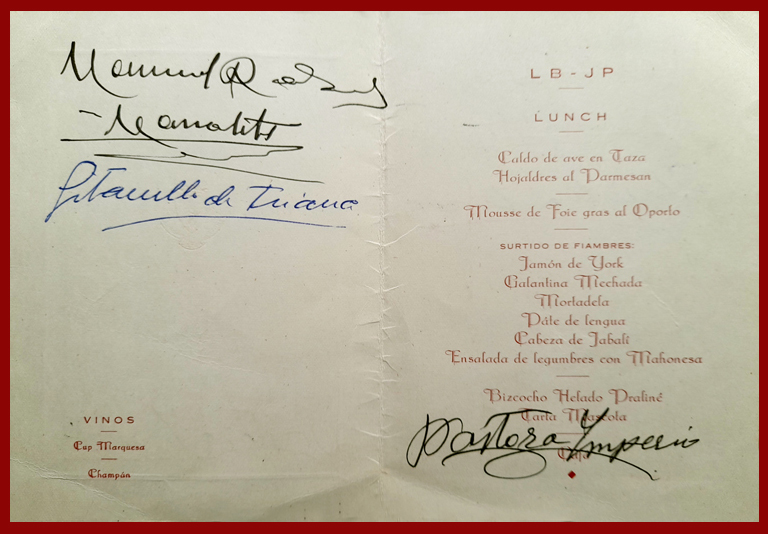 Manuel Rodríguez
"Manolete"
Gitanillo de Triana
VINOS
Cup Marquesa
Champán
LB-JP
LUNCH
Caldo de ave en Taza
Hojaldres al Parmesan
Mousse de Foie gras al Oporto
SURTIDO DE FIAMBRES:
Jamón de York
Galantina Mechada
Mortadela
Páte de lengua
Cabeza de Jabalí
Ensalada de legumbres con Mahonesa
Bizcocho Helado Praliné
Tarta Mascota
Pastora Imperio
Café